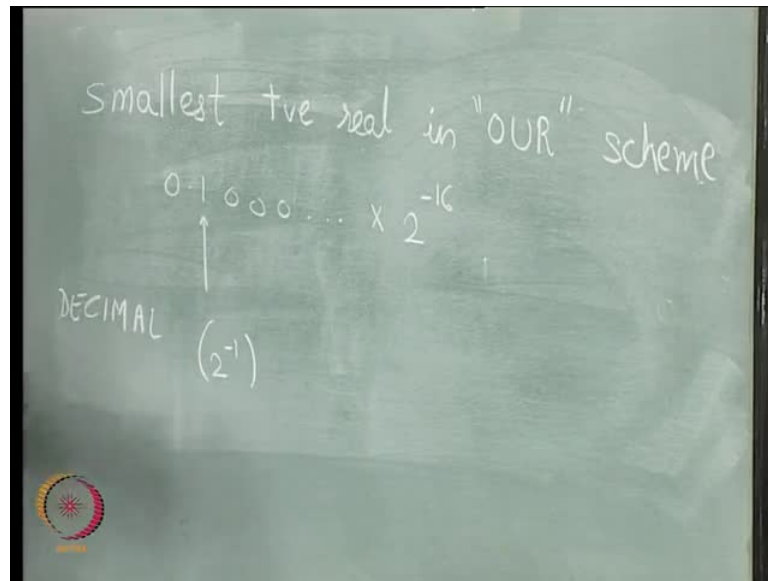 Smallest +ve real in "OUR" scheme
0.1000... × 2^-16
DECIMAL (2^-1)